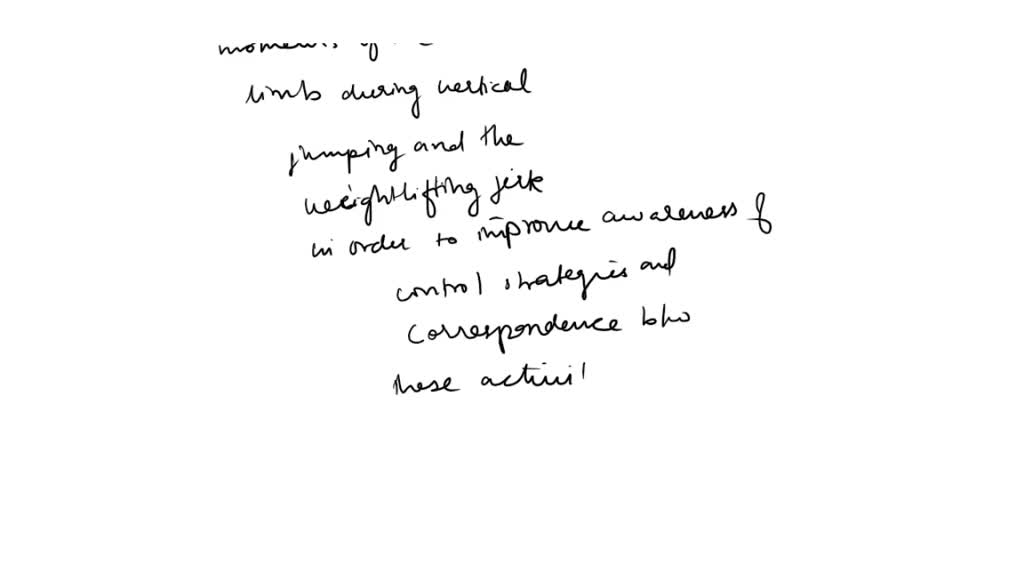 moments of
limb during vertical
jumping and the
weightlifting jerk
in order to improve awareness of
control strategies and
correspondence b/w
these activit